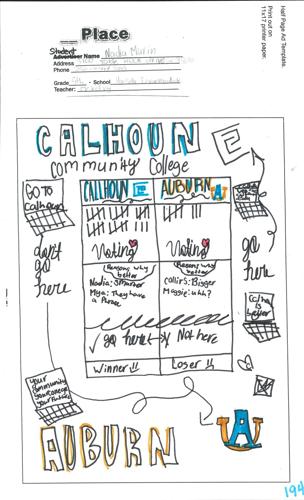 Half Page Ad Template.
Print out on
11x17 printer paper.
Place
Student
Advertiser Name Nadia Marin
Address
Phone
Grade 5th - School
Teacher:
CALHOUN
Community College
GO TO
Calhoun
don't
go
here
CALHOUN
AUBURN
Voting
Voting
Reasons why
better
Nadia: Smarter
Miya: They have
a Phrase
Reasons why
better
Bigger
Maggie: uhh?
✓ go here!
Not here
Winner!!
Loser
go
here
is
better
your community
your college
your future
AUBURN
AU
194